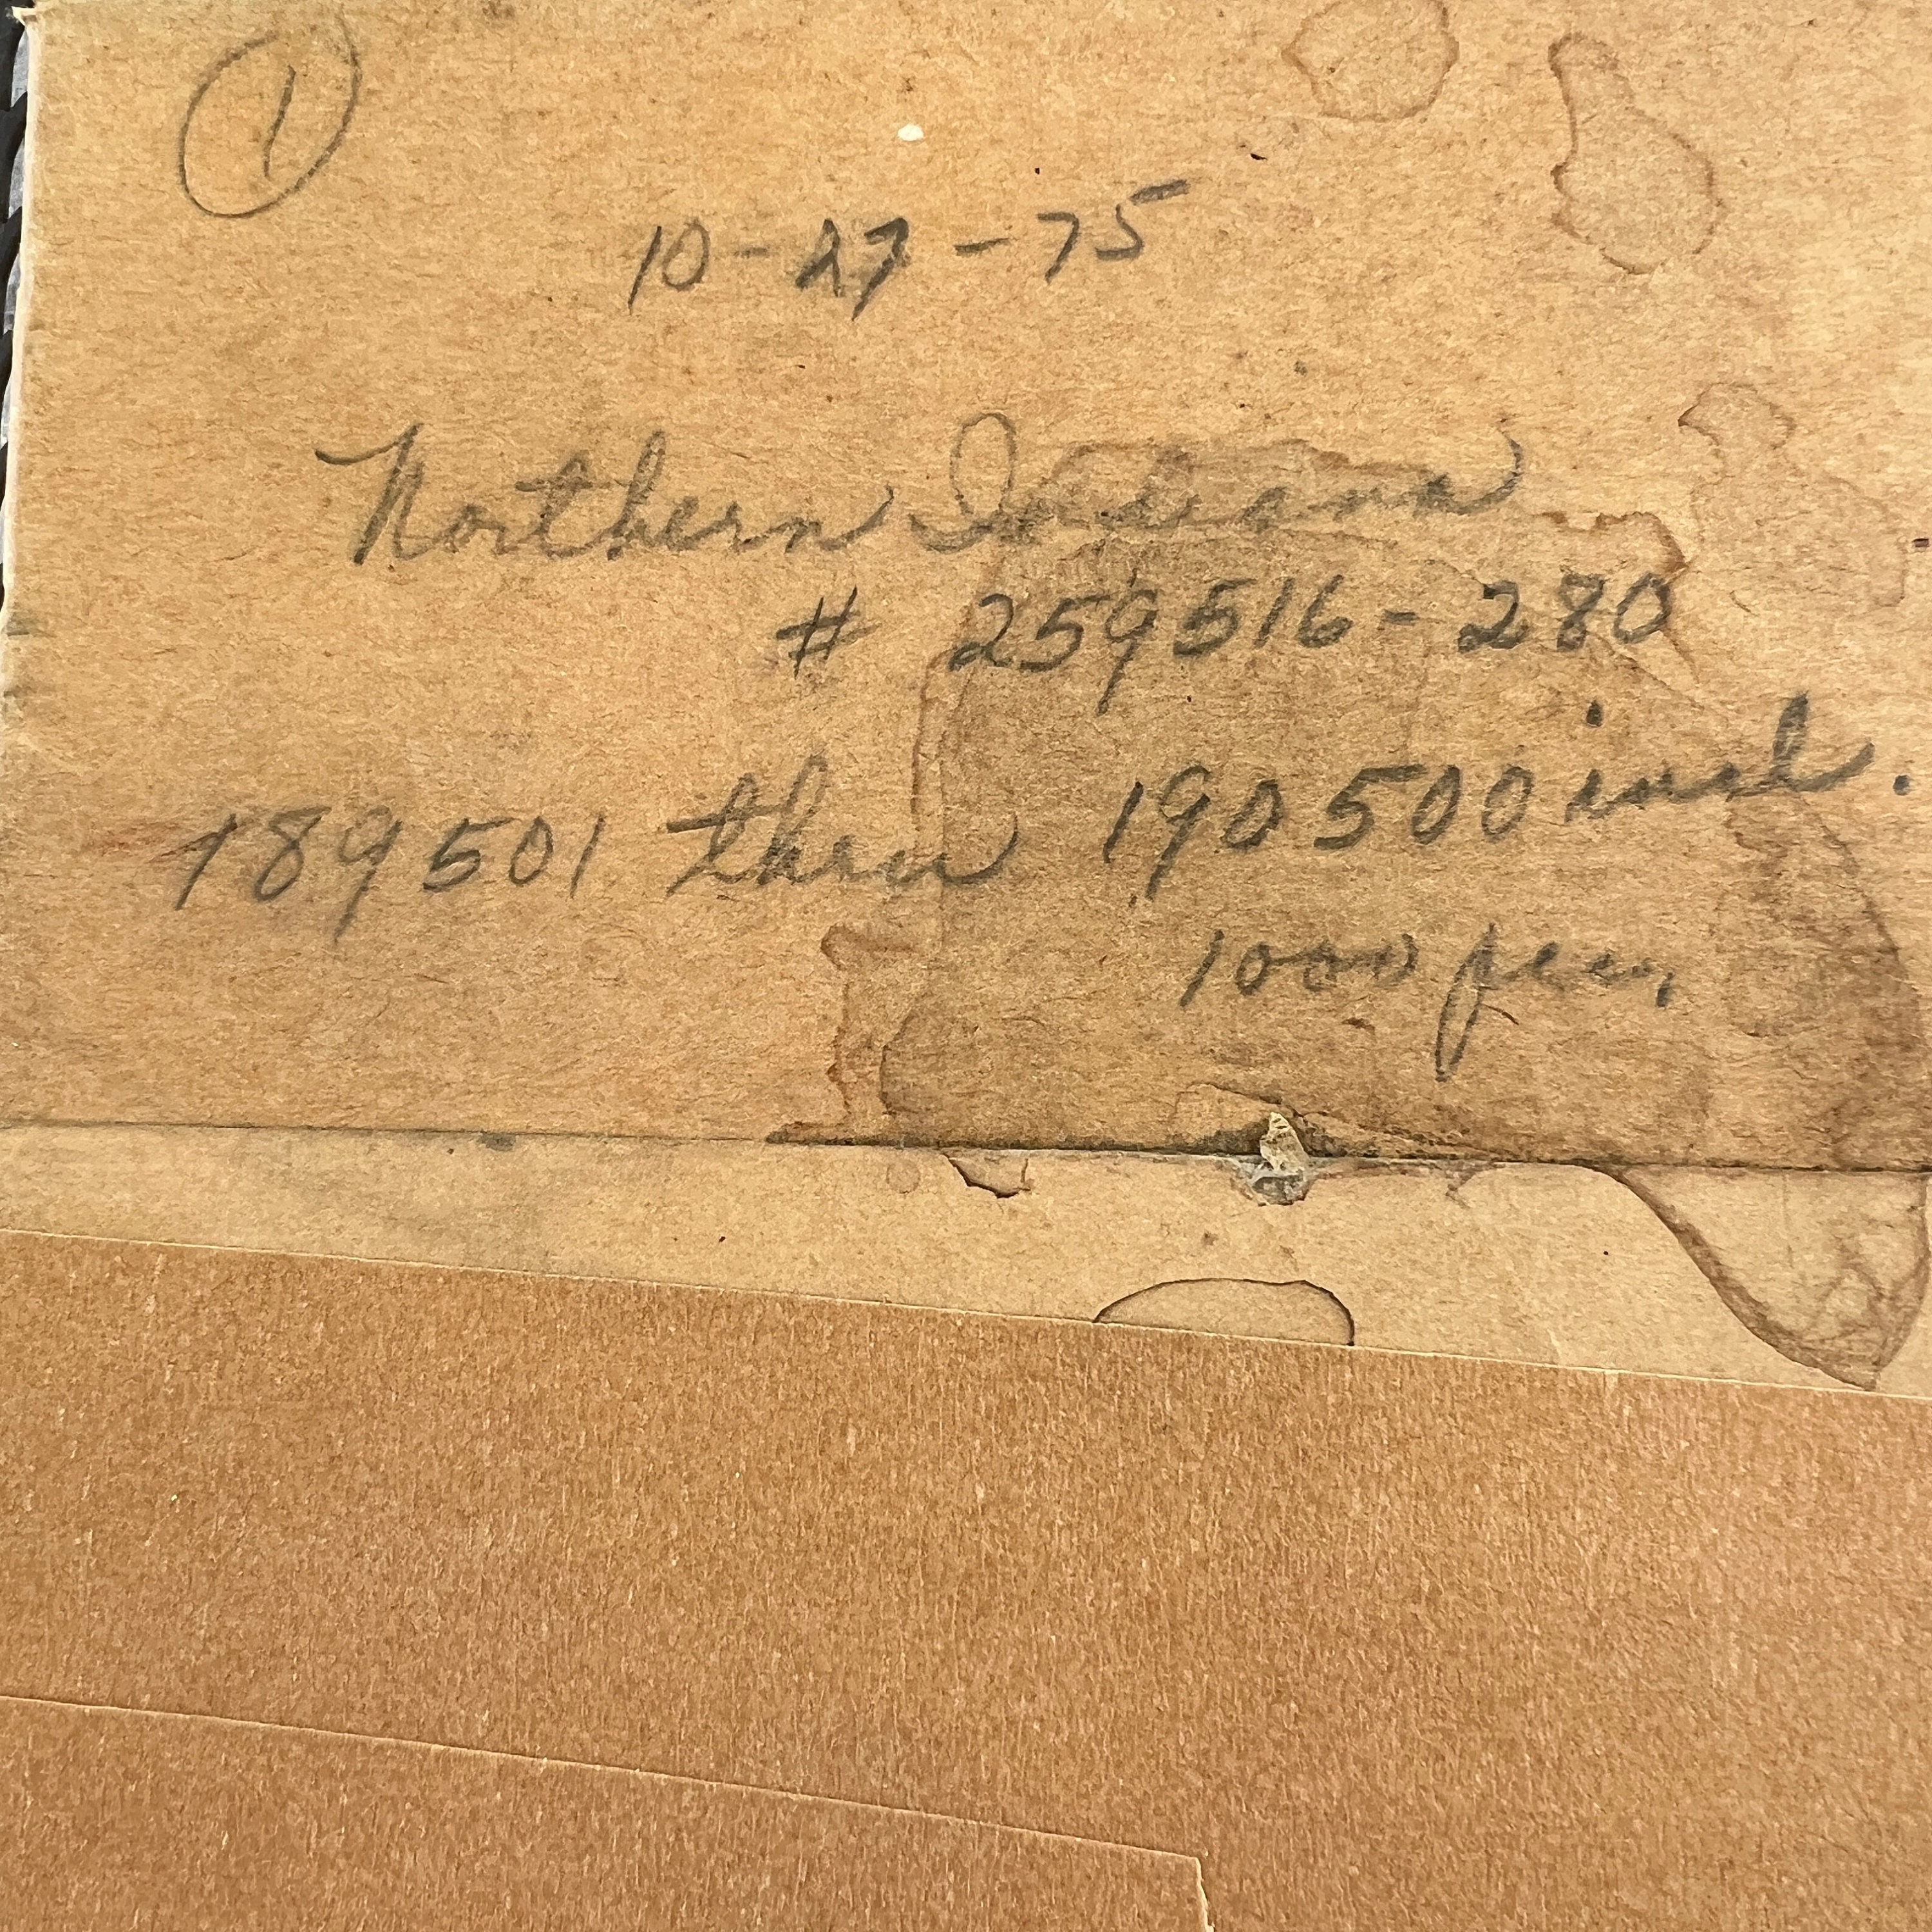 1
10-27-75
Northern Indiana
# 259516-280
189501 thru 190500 incl.
1000 pcs.